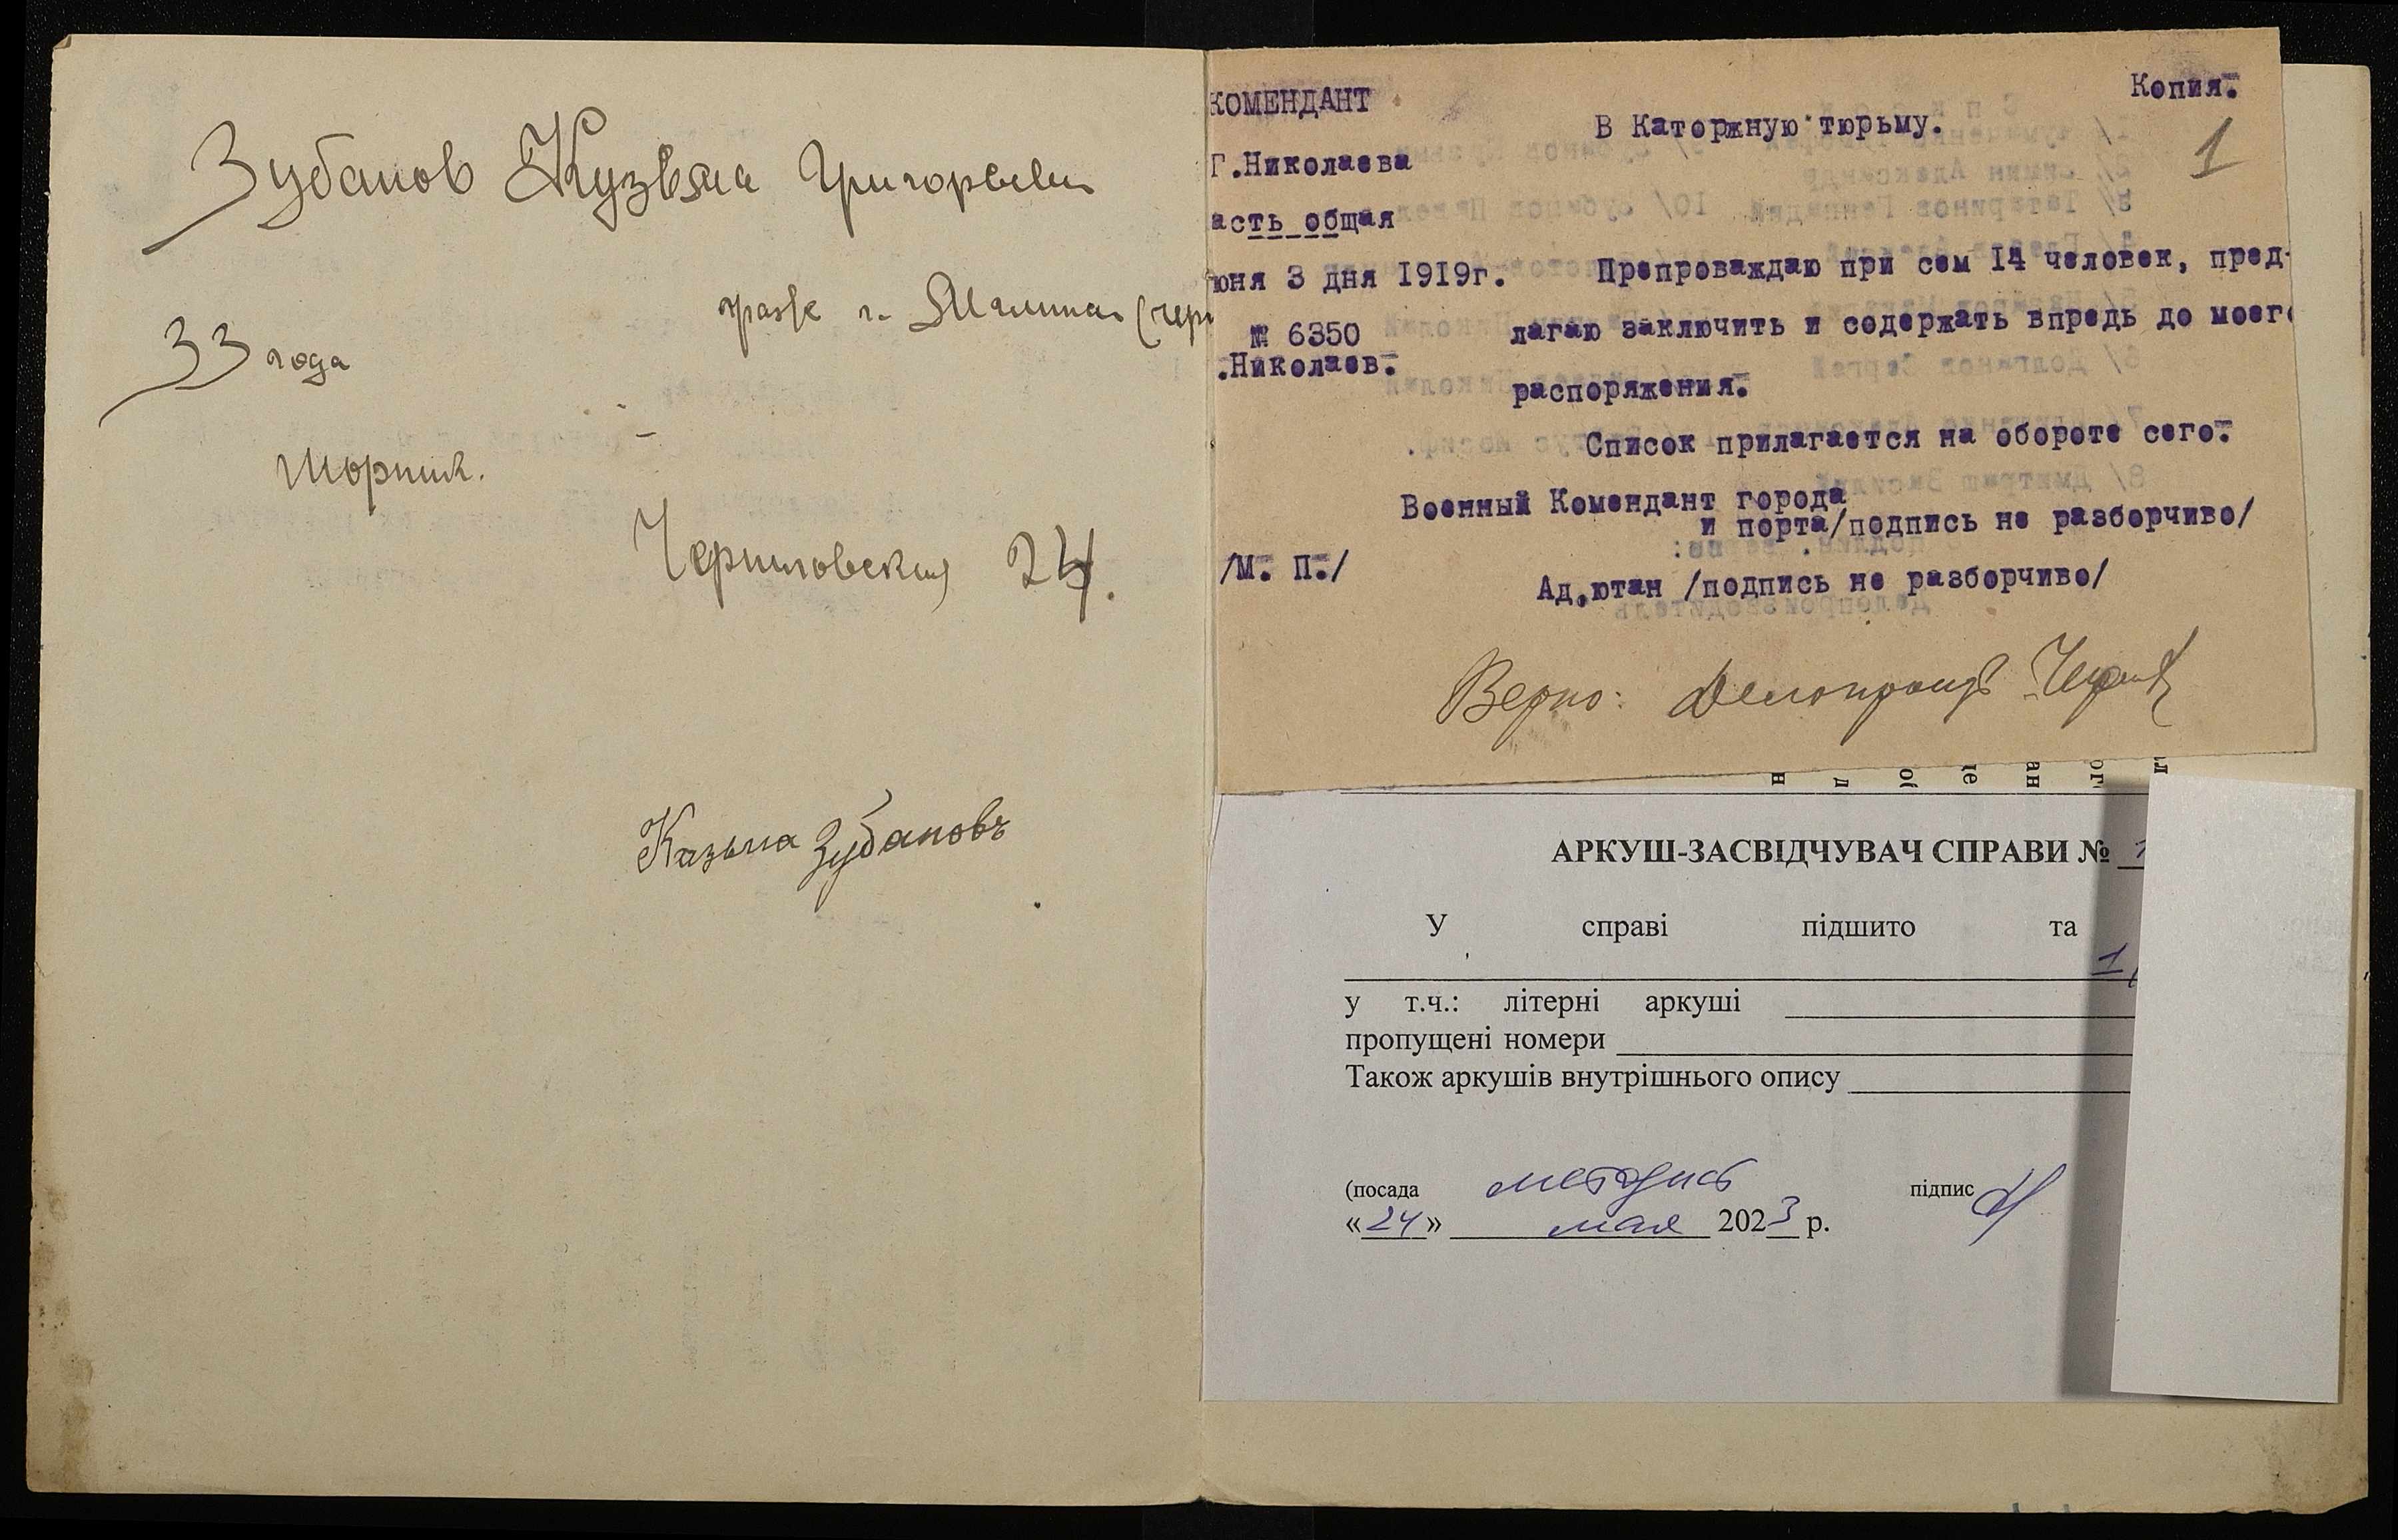 Зубанов Кузьма Григорьевич
33 года
Шорник.
Черниговская 24.
Казьма Зубановъ
Копия.
1
КОМЕНДАНТ
В Каторжную тюрьму.
Г.Николаева
асть общая
юня 3 дня 1919г.
Препроваждаю при сем 14 человек, пред-
№ 6350
лагаю заключить и содержать впредь до моего
.Николаев.
распоряжения.
Список прилагается на обороте сего.
Военный Комендант города
и порта/подпись не разборчиво/
/М. П./
Ад,ютан /подпись не разборчиво/
Верно:
АРКУШ-ЗАСВІДЧУВАЧ СПРАВИ № 1
У справі підшито та
1
у т.ч.: літерні аркуші
пропущені номери
Також аркушів внутрішнього опису
(посада методист підпис
«24» мая 2023 р.